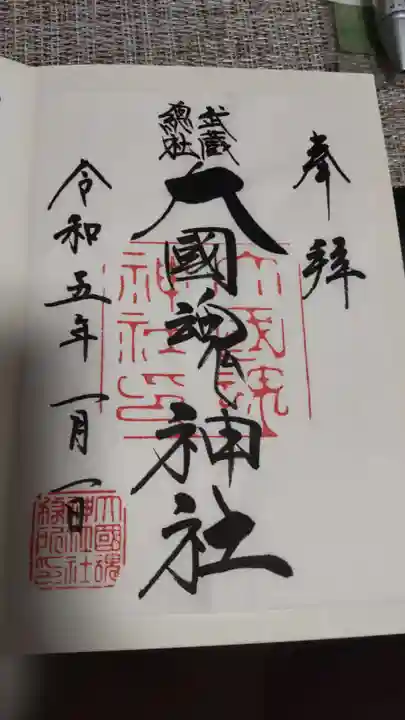 奉拝
武蔵
總社
大國魂神社
令和五年一月一日
大國魂
神社
務所印